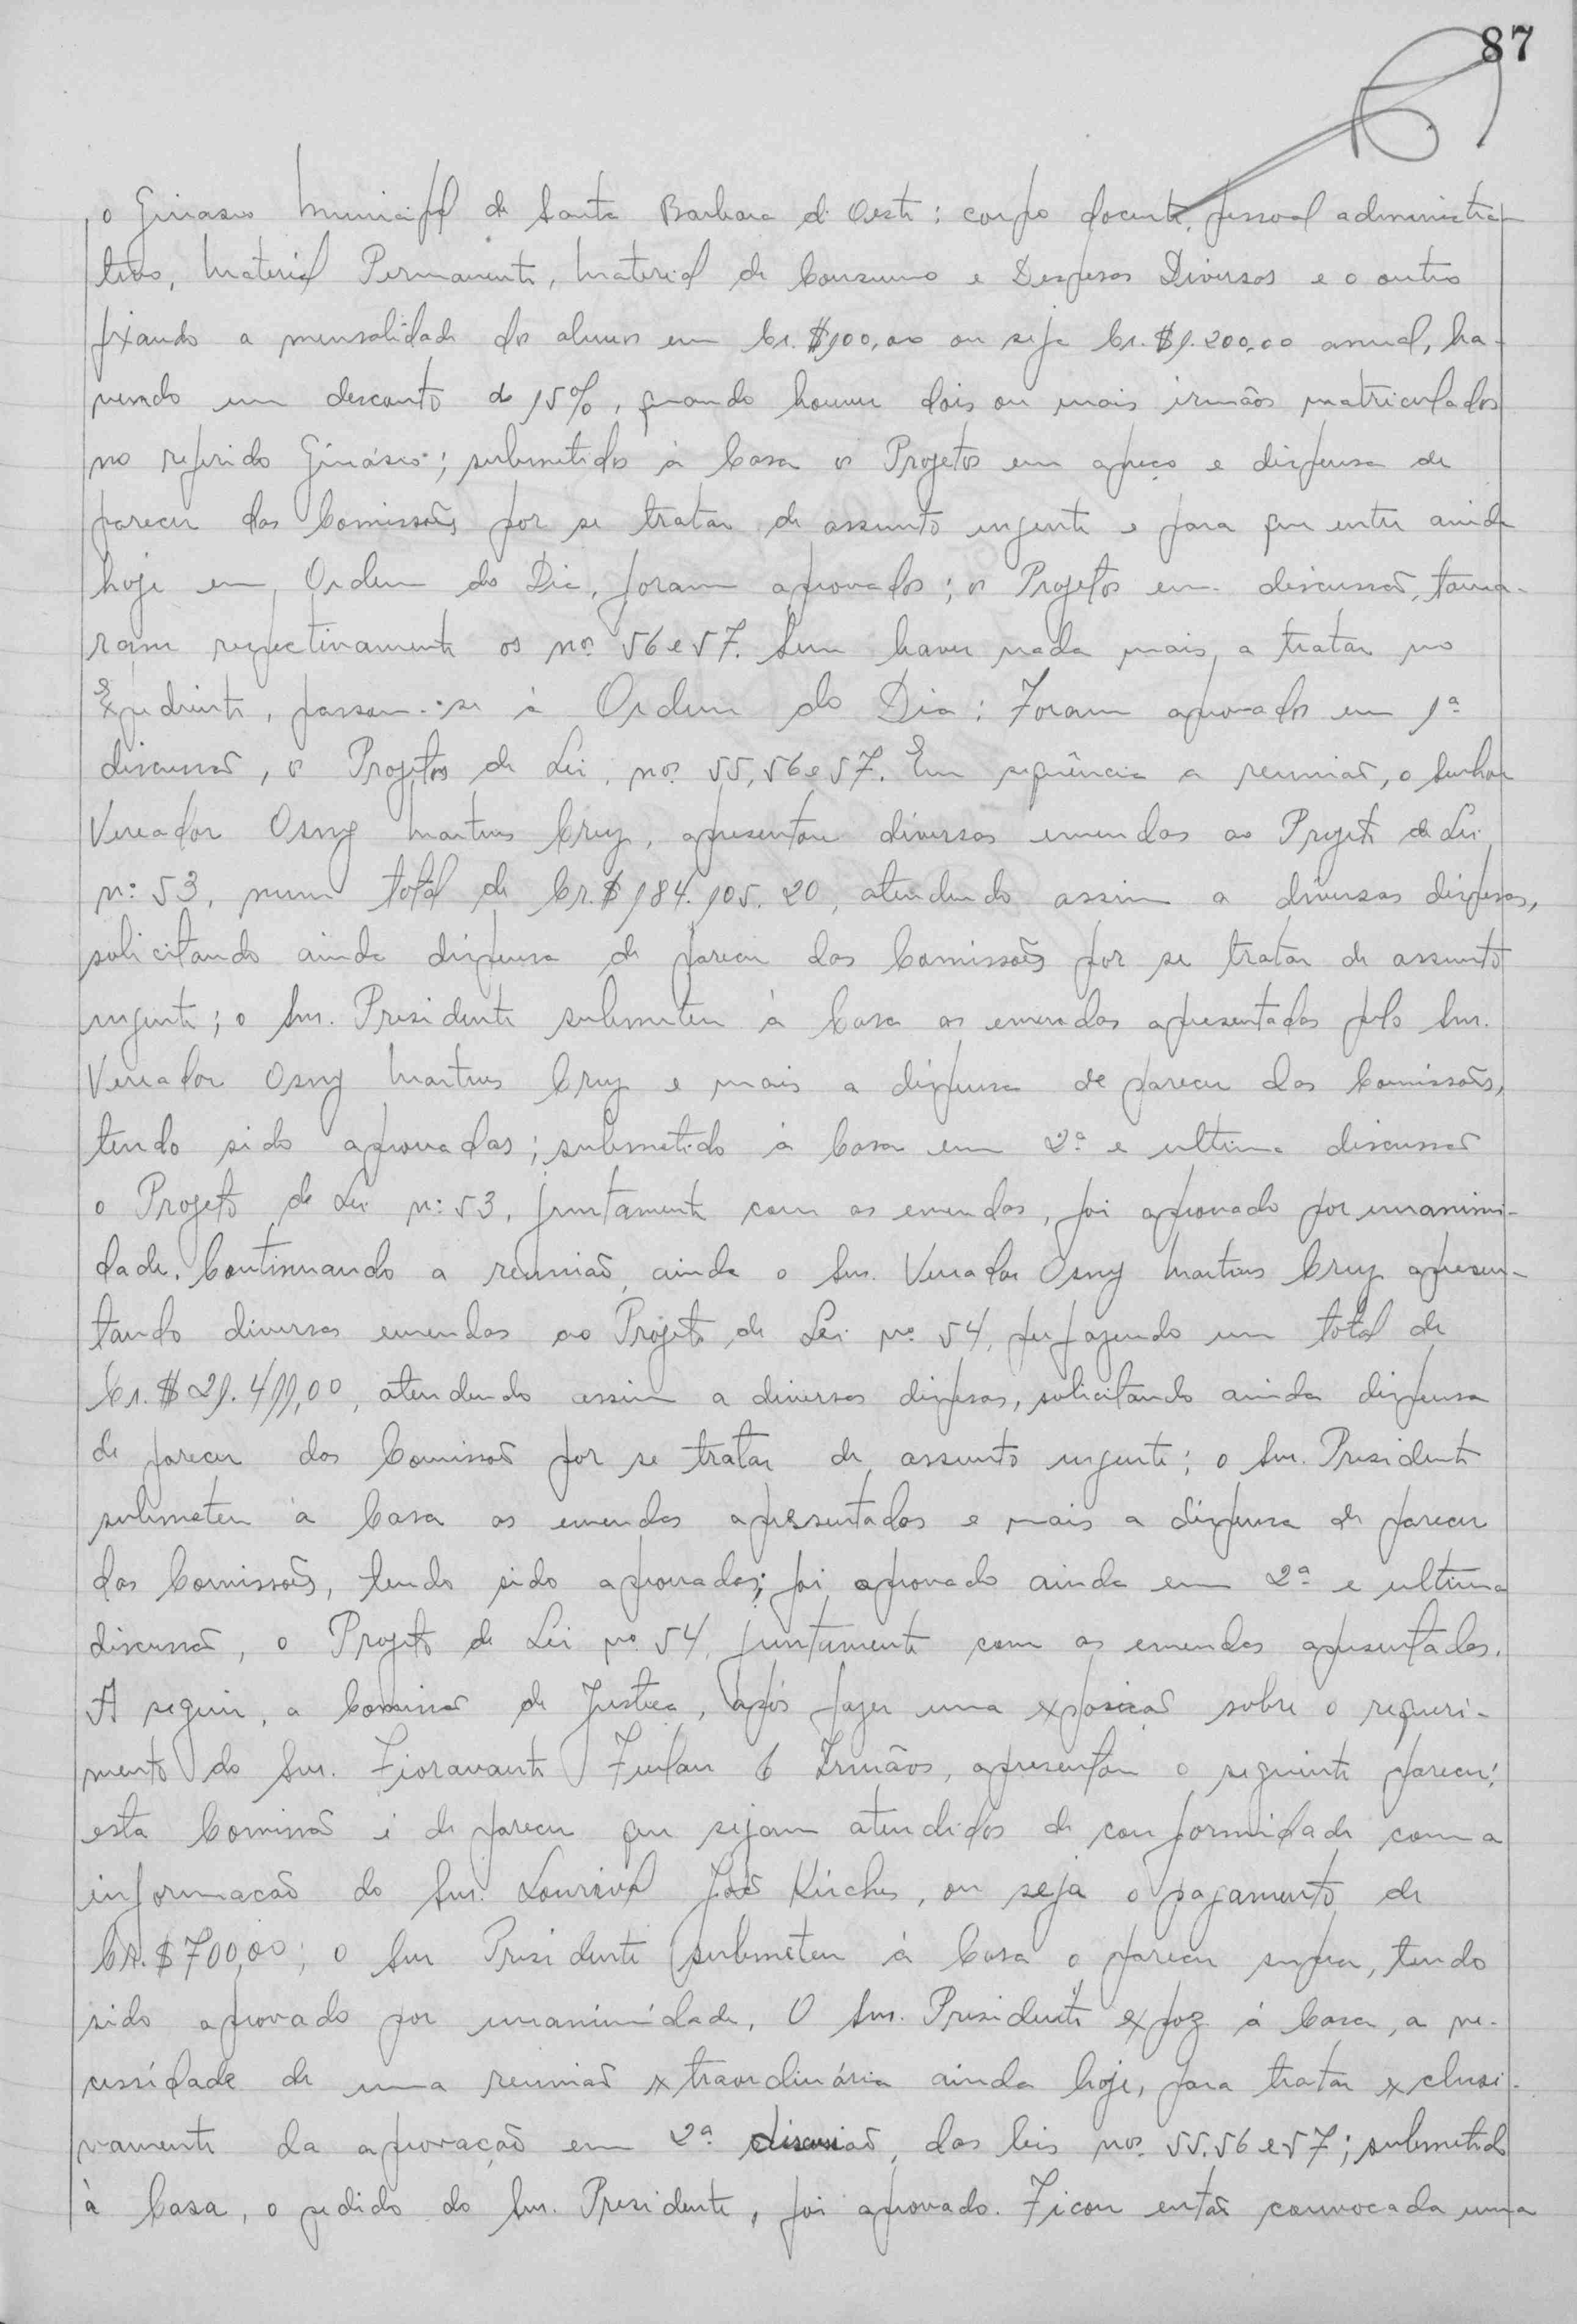 87
o Ginasio Municipal de Santa Barbara d'Oeste: corpo docente, pessoal administra-
tivo, Material Permanente, Material de Consumo e Despesas Diversas e o outro
fixando a mensalidade dos alunos em Cr.$100,00 ou seja Cr.$1.200,00 anual, ha-
vendo um desconto de 15%, quando houver dois ou mais irmãos matriculados
no referido Ginásio; submetidos à Casa os Projetos em apreço e dispensa de
parecer das Comissões por se tratar de assunto urgente e para que entre ainda
hoje em Ordem do Dia, foram aprovados; os Projetos em discussão, toma-
ram respectivamente os nos. 56 e 57. Sem haver nada mais, a tratar no
Expediente, passou-se à Ordem do Dia: Foram aprovados em 1ª
discussão, os Projetos de Lei, nos. 55, 56 e 57. Em sequência a reunião, o Senhor
Vereador Osny Martins Cruz, apresentou diversas emendas ao Projeto de Lei
nº: 53, num total de Cr.$184.105.20, atendendo assim a diversas dispesas,
solicitando ainda dispensa de parecer das Comissões por se tratar de assunto
urgente; o Snr. Presidente submeteu à Casa as emendas apresentadas pelo Snr.
Vereador Osny Martins Cruz e mais a dispensa de parecer das Comissões,
tendo sido aprovadas; submetido à Casa em 2ª e ultima discussão
o Projeto de Lei nº: 53, juntamente com as emendas, foi aprovado por unanimi-
dade. Continuando a reunião, ainda o Snr. Vereador Osny Martins Cruz apresen-
tando diversas emendas ao Projeto de Lei nº 54, perfazendo um total de
Cr.$ atendendo assim a diversas dispesas, solicitando ainda dispensa
de parecer das Comissão por se tratar de assunto urgente; o Snr. Presidente
submeteu à Casa as emendas apresentadas e mais a dispensa de parecer
das Comissões, tendo sido aprovadas; foi aprovado ainda em 2ª e ultima
discussão, o Projeto de Lei nº 54, juntamente com as emendas apresentadas.
A seguir, a Comissão de Justiça, após fazer uma exposição sobre o requeri-
mento do Snr. Fioravante Furlan & Irmãos, apresentou o seguinte parecer:
esta Comissão é de parecer que sejam atendidos de conformidade com a
informação do Snr. Lourival João Kirches, ou seja o pagamento de
Cr.$700,00; o Snr Presidente submeteu à Casa o parecer supra, tendo
sido aprovado por unanimidade. O Snr. Presidente expoz à Casa, a ne-
cessidade de uma reunião extraordinária ainda hoje, para tratar exclusi-
vamente da aprovação em 2ª discussão, das leis nos. 55.56 e 57; submetido
à Casa, o pedido do Snr. Presidente, foi aprovado. Ficou então convocada uma